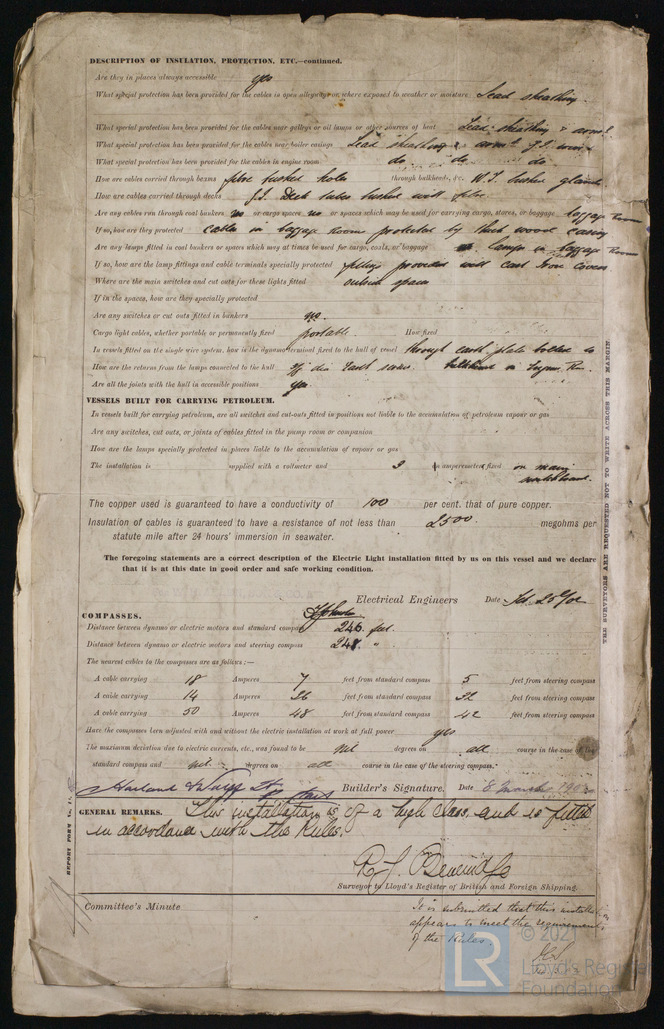 DESCRIPTION OF INSULATION, PROTECTION, ETC.—continued.
Are they in places always accessible yes
What special protection has been provided for the cables in open alleyways or where exposed to weather or moisture Lead sheathing.
What special protection has been provided for the cables near galleys or oil lamps or other sources of heat Lead sheathing &
What special protection has been provided for the cables near boiler casings Lead sheathing
What special protection has been provided for the cables in engine room do do do
How are cables carried through beams fibre bushed holes through bulkheads, &c. W.T. glands
How are cables carried through decks G.I. Deck tubes bushed with fibre
Are any cables run through coal bunkers no or cargo spaces no or spaces which may be used for carrying cargo, stores, or baggage baggage Room
If so, how are they protected cables in baggage Room protected by thick wood casing
Are any lamps fitted in coal bunkers or spaces which may at times be used for cargo, coals, or baggage lamps in baggage Room
If so, how are the lamp fittings and cable terminals specially protected fittings provided with cast Iron covers
Where are the main switches and cut outs for these lights fitted outside space
If in the spaces, how are they specially protected
Are any switches or cut outs fitted in bunkers no.
Cargo light cables, whether portable or permanently fixed portable. How fixed
In vessels fitted on the single wire system, how is the dynamo terminal fixed to the hull of vessel through earth plate bolted to
How are the returns from the lamps connected to the hull dia earth screws. bulkhead in Rm.
Are all the joints with the hull in accessible positions yes
VESSELS BUILT FOR CARRYING PETROLEUM.
In vessels built for carrying petroleum, are all switches and cut-outs fitted in positions not liable to the accumulation of petroleum vapour or gas
Are any switches, cut outs, or joints of cables fitted in the pump room or companion
How are the lamps specially protected in places liable to the accumulation of vapour or gas
The installation is supplied with a voltmeter and 3 amperemeters fixed on main
switchboard.
The copper used is guaranteed to have a conductivity of 100 per cent. that of pure copper.
Insulation of cables is guaranteed to have a resistance of not less than 2500 megohms per
statute mile after 24 hours' immersion in seawater.
The foregoing statements are a correct description of the Electric Light installation fitted by us on this vessel and we declare
that it is at this date in good order and safe working condition.
Electrical Engineers Date
COMPASSES.
Distance between dynamo or electric motors and standard compass 246 feet.
Distance between dynamo or electric motors and steering compass 248 "
The nearest cables to the compasses are as follows:—
A cable carrying 18 Amperes 7 feet from standard compass 5 feet from steering compass
A cable carrying 14 Amperes 36 feet from standard compass 32 feet from steering compass
A cable carrying 50 Amperes 48 feet from standard compass 42 feet from steering compass
Have the compasses been adjusted with and without the electric installation at work at full power yes
The maximum deviation due to electric currents, etc., was found to be Nil degrees on all course in the case of the
standard compass and nil degrees on all course in the case of the steering compass.
Harland & Wolff Builder's Signature. Date 8 March
GENERAL REMARKS. This installation is of a high class and is fitted
in accordance with the Rules.
Surveyor to Lloyd's Register of British and Foreign Shipping.
Committee's Minute
It is submitted that this installation
appears to meet the requirements
of the Rules
THE SURVEYORS ARE REQUESTED NOT TO WRITE ACROSS THIS MARGIN.
REPORT FORM No.
LR
© 202
Lloyd's Register
Foundation